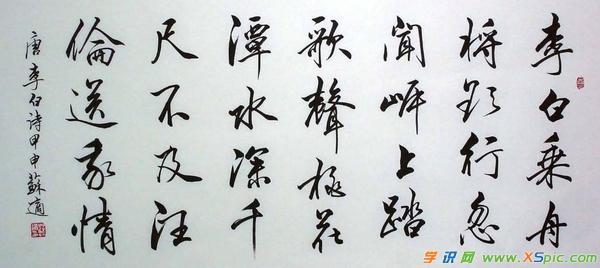 李白乘舟
將欲行忽
聞岸上踏
歌聲桃花
潭水深千
尺不及汪
倫送我情
唐李白詩甲申蘇適
学识网 www.XSpic.com